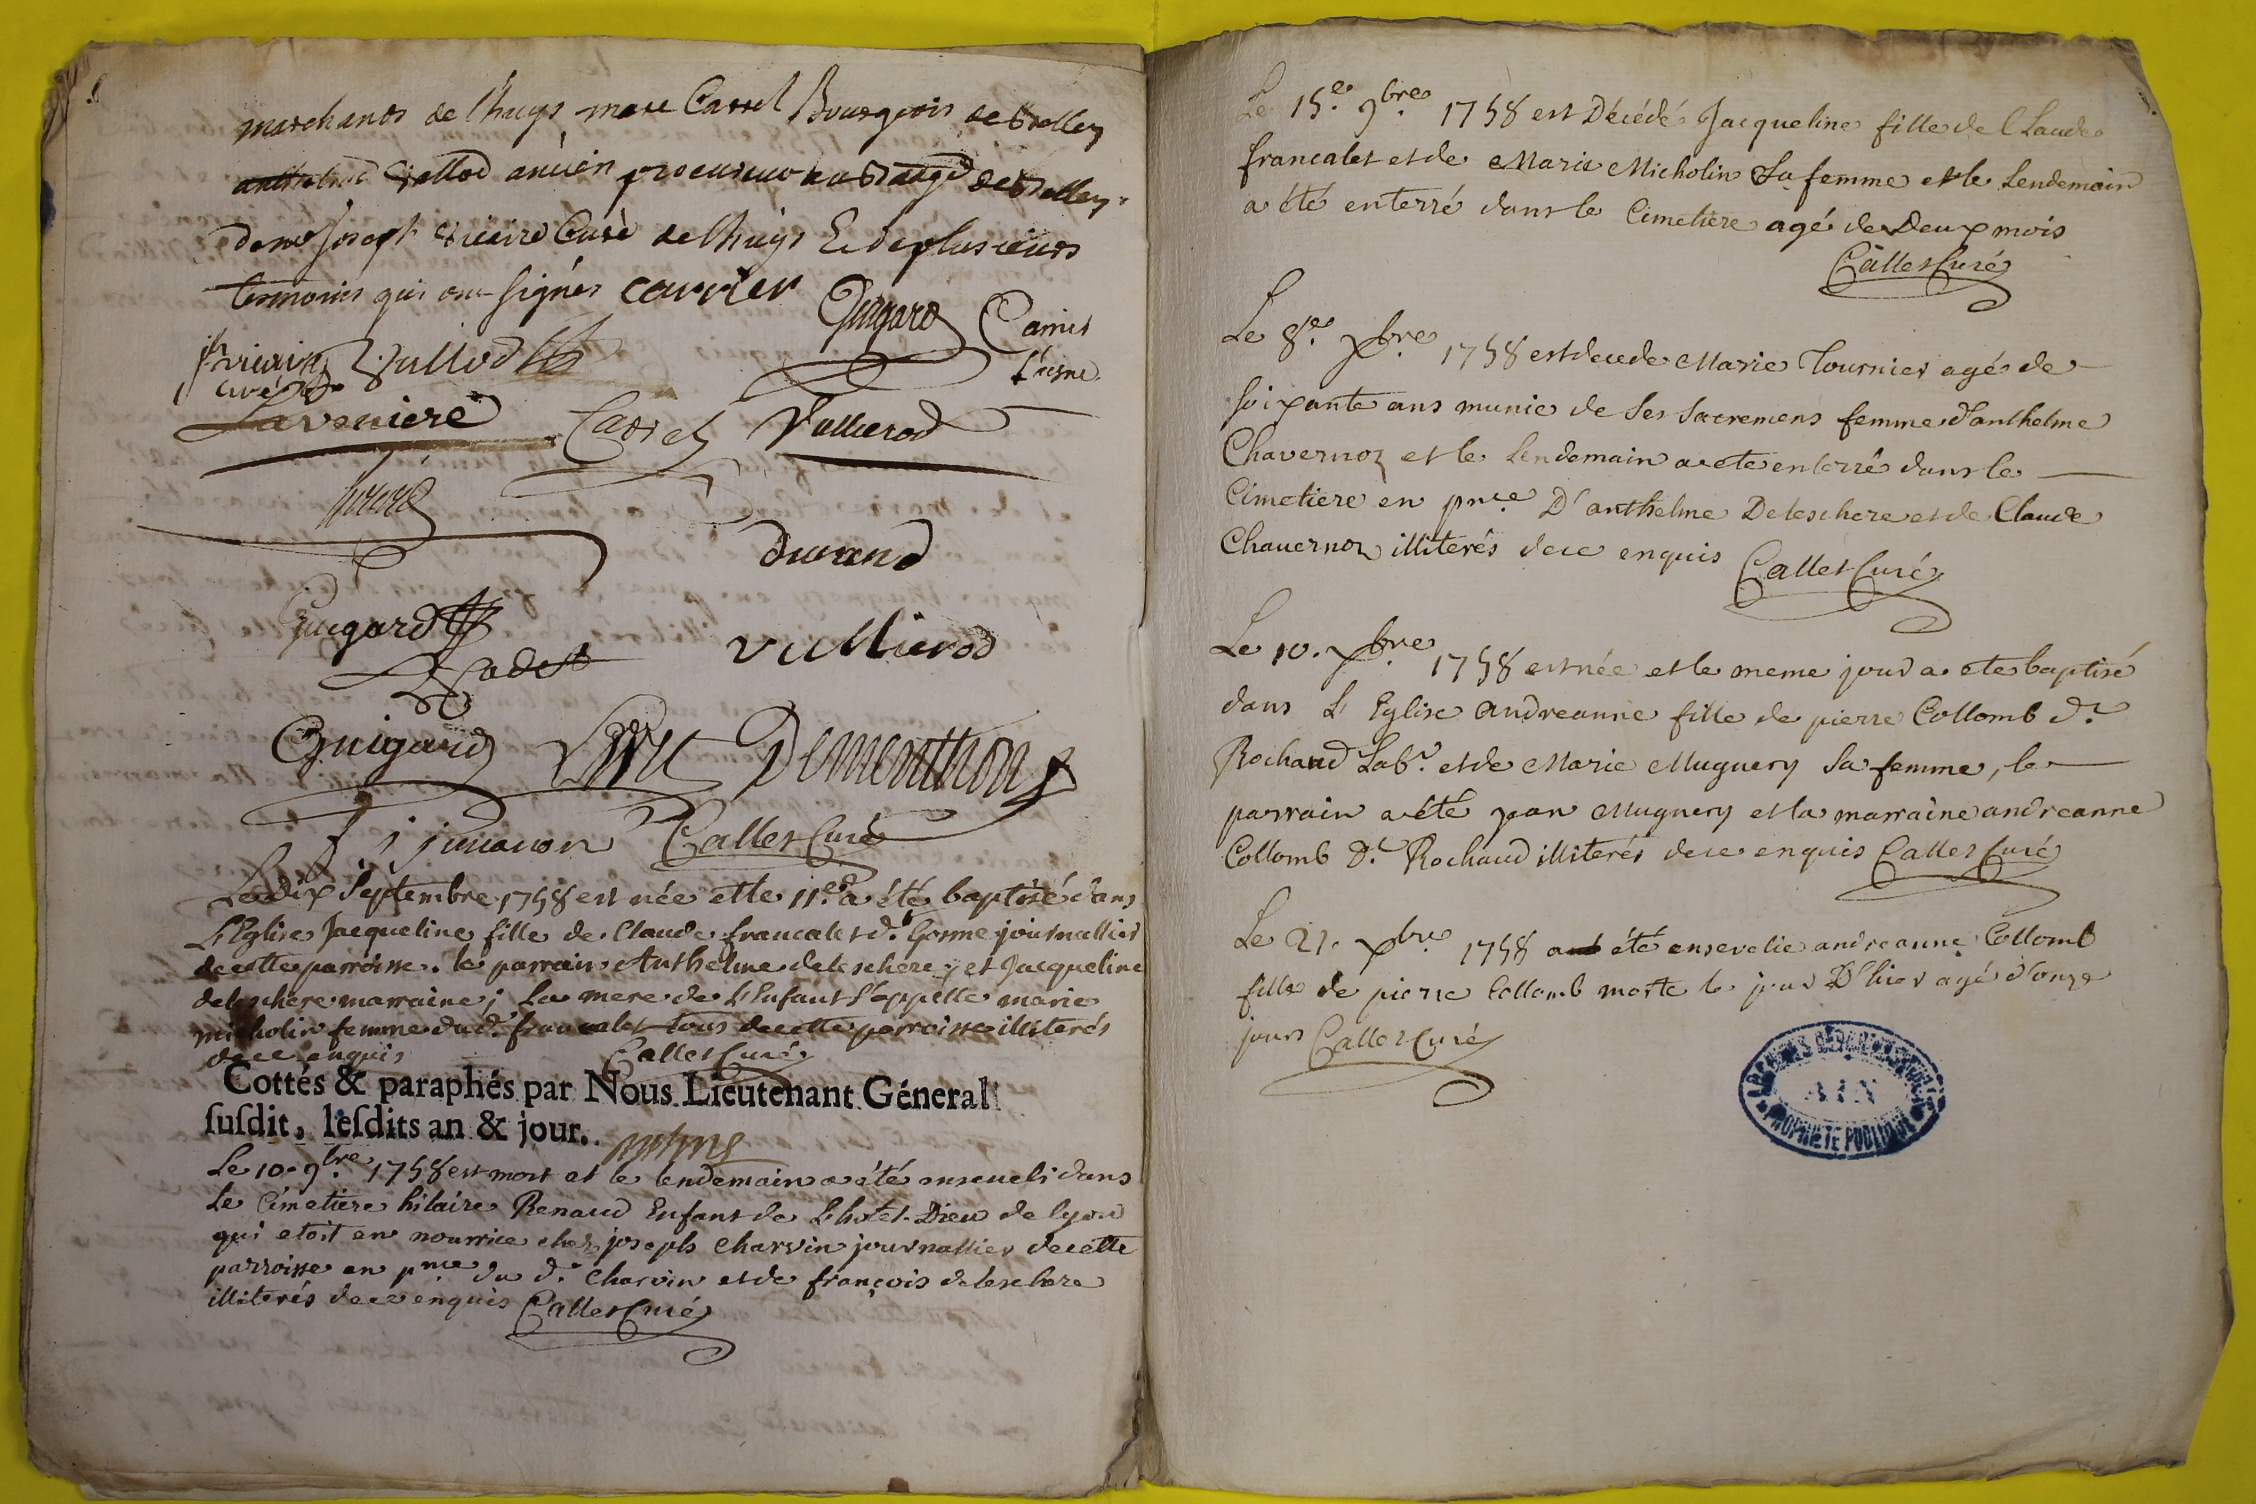 marchands de lhuys marc Carrel Bourgeois de Belley
Vallod ancien procureur au Bailge de Belley
de mre Joseph vicaire Curé de lhuys Et de plusieurs
temoins qui ont signés carrier Guigard Carrier
L'aisne
Vullod
curé
Laveniere Carrel Vullierod
Durand
Guigard
Cadet Vullierod
Guigard Dementhon
Callet Curé
Le dix Septembre 1758 est née et le 11e a été baptisé dans
L'Eglise Jacqueline fille de Claude francalet dt Gorme journallier
de cette parroisse. le parrain Anthelme deleschere, et Jacqueline
deleschere marraine; La mere de L'Enfant S'appelle marie
micholin femme dud. francalet tous de cette parroisse illiterés
de ce enquis Callet Curé
Cottés & paraphés par Nous Lieutenant Géneral
susdit, lesdits an & jour.
Le 10. 9bre 1758 est mort et le lendemain a été enseveli dans
Le Cimetiere hilaire Renaud Enfant de L'hotel-Dieu de lyon
qui etoit en nourrice chez joseph Charvin journallier de cette
parroisse en pnce du d. Charvin et de françois deleschere
illiterés de ce enquis Callet Curé
Le 15e 9bre 1758 est Décédé Jacqueline fille de Claude
francalet et de Marie Micholin Sa femme et le Lendemain
a été enterré dans le Cimetiere agé de Deux mois
Callet Curé
Le 8e Xbre 1758 est decede Marie Tournier agé de
soixante ans munie de Ses Sacremens femme d'anthelme
Chavernoz et le Lendemain a ete enterré dans le
Cimetiere en pnce D'anthelme Deleschere et de Claude
Chavernoz illiterés de ce enquis Callet Curé
Le 10. Xbre 1758 est née et le meme jour a ete baptisé
dans L'Eglise andreanne fille de pierre Collomb dt
Rochaud Labr. et de Marie Muguery Sa femme, le
parrain a été jean Muguery et la marraine andreanne
Collomb dt Rochaud illiterés de ce enquis Callet Curé
Le 21. Xbre 1758 a été ensevelie andreanne Collomb
fille de pierre Collomb morte le jour D'hier agé d'onze
jours Callet Curé
ARCHIVES DÉPARTEMENTALES
AIN
PROPRIETE PUBLIQUE